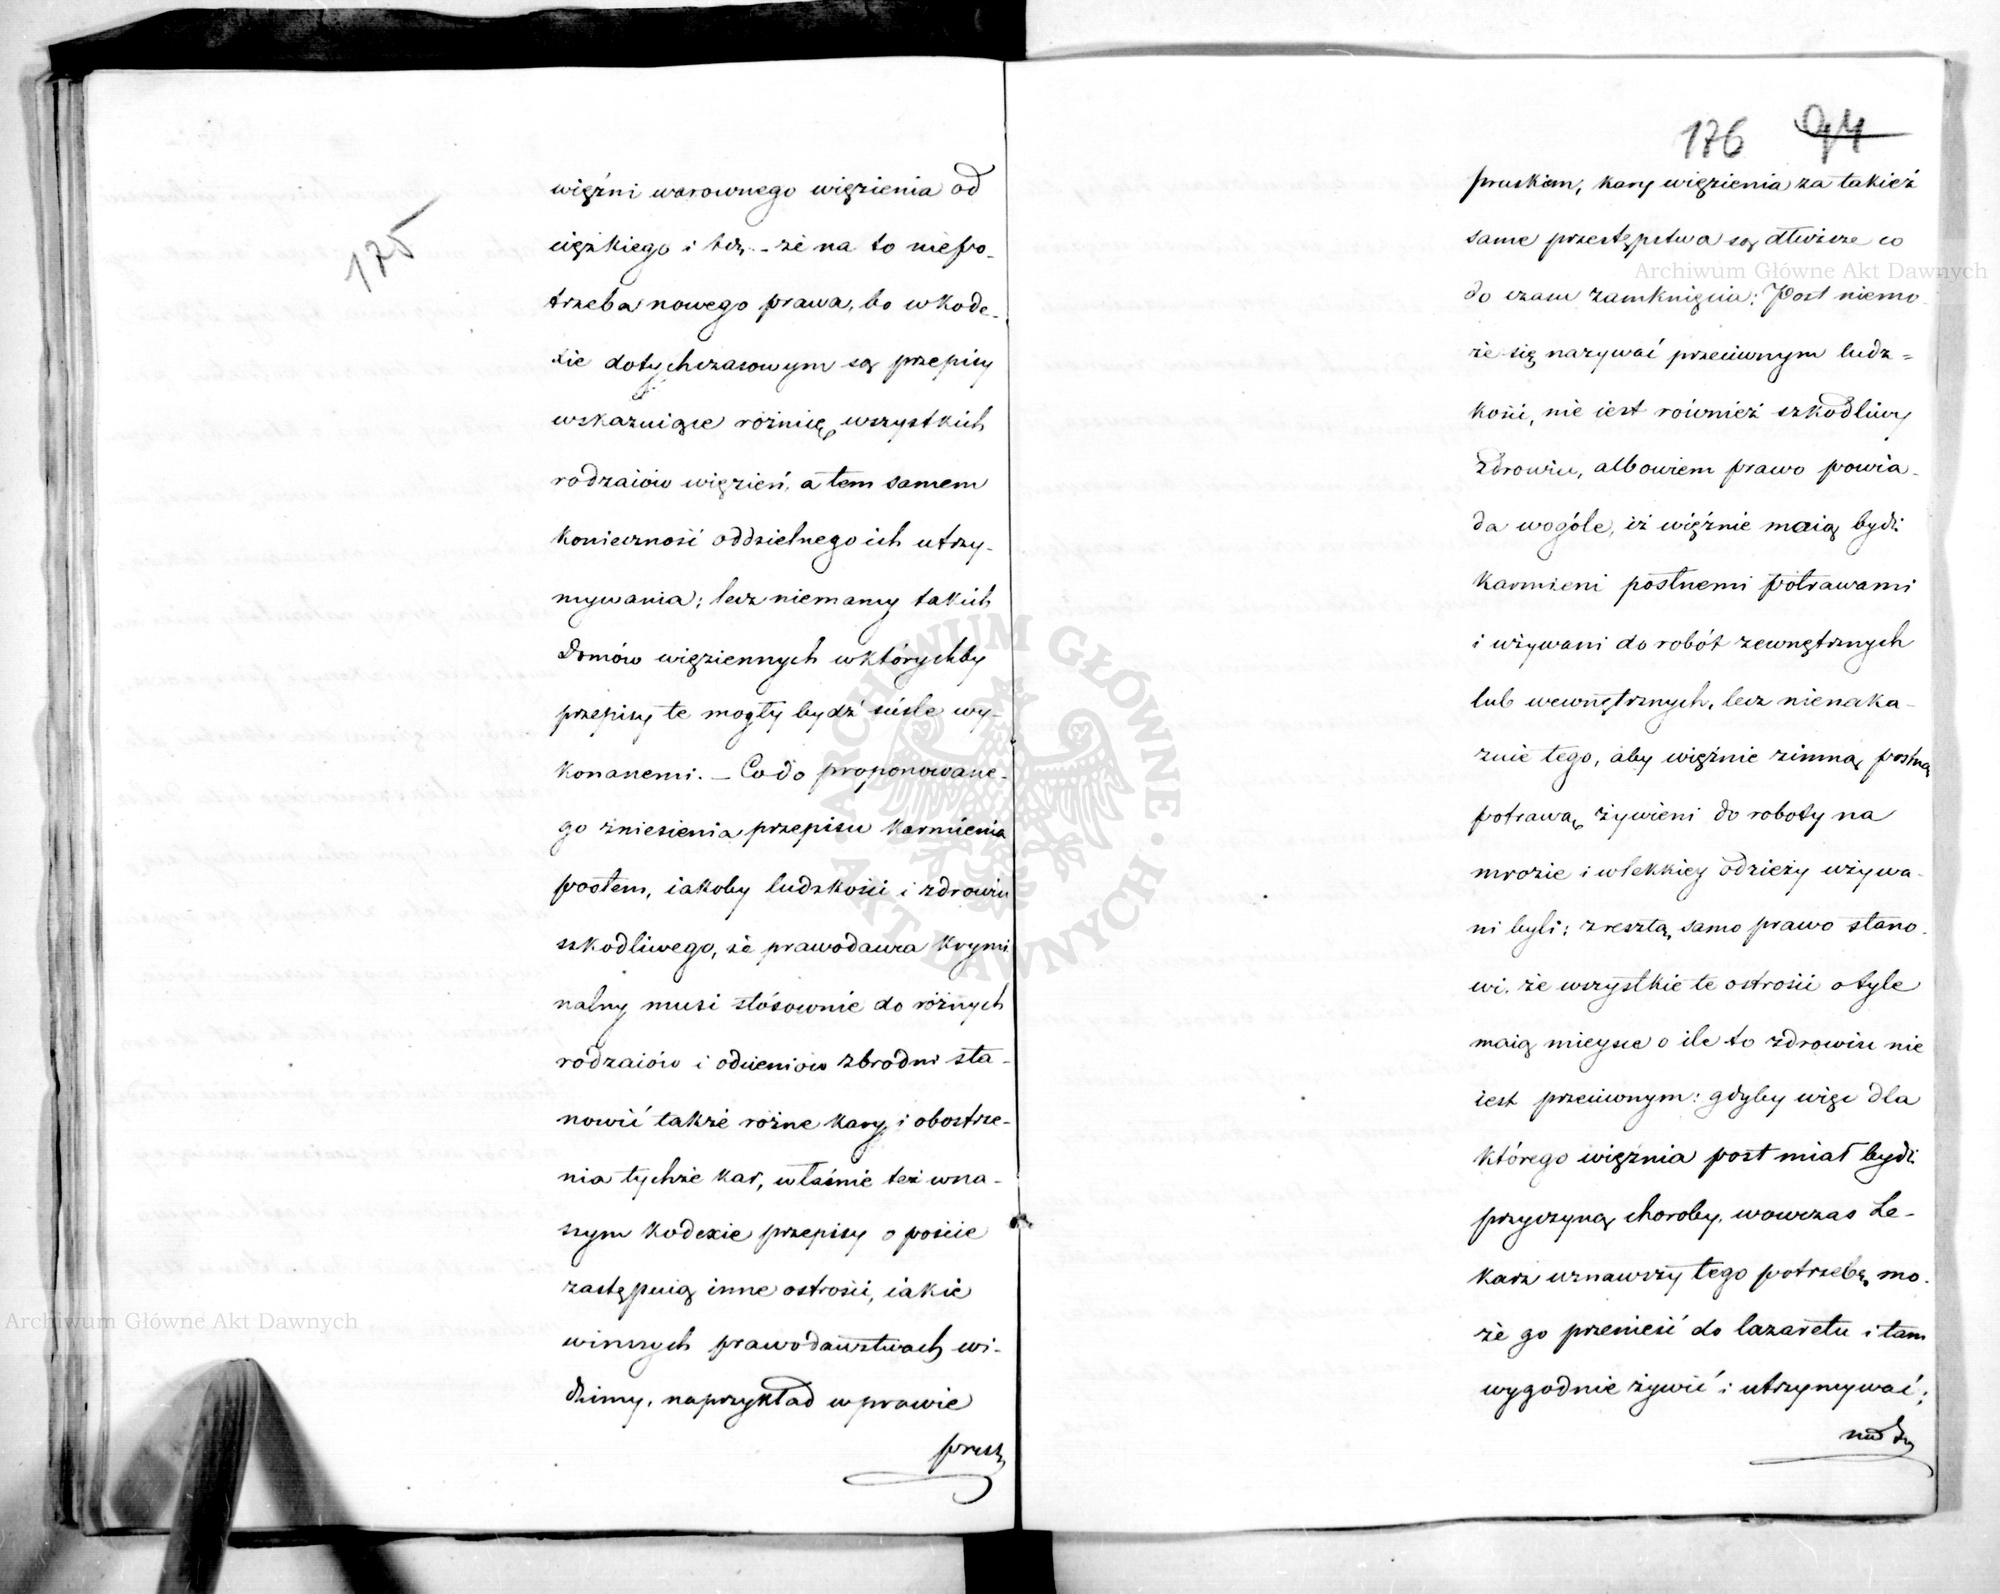 175
więźni warownego więzienia od
ciężkiego i t.d. – że na to niepo-
trzeba nowego prawa, bo w kode-
xie dotychczasowym są przepisy
wskazuiące różnicę wszystkich
rodzaiów więzień, a tem samem
konieczność oddzielnego ich utrzy-
mywania; lecz niemamy takich
domów więziennych w którychby
przepisy te mogły bydź ściśle wy-
konanemi. – Co do proponowane-
go zniesienia przepisu karmienia
postem, iakoby ludzkości i zdrowiu
szkodliwego, że prawodawca krymi
nalny musi stósownie do różnych
rodzaiów i odcieniów zbrodni sta-
nowić także różne kary i obostrze-
nia tychże kar, właśnie też w na-
szym kodexie przepisy o poście
zastępuią inne ostrości, iakie
w innych prawodawstwach wi-
dzimy, naprzykład w prawie
prusk
176 94
pruskiem, kary więzienia za takież
same przestępstwa są dłuższe co
do czasu zamknięcia: Post niemo-
że się nazywać przeciwnym ludz=
kości, nie iest również szkodliwy
zdrowiu, albowiem prawo powia-
da wogóle, iż więźnie maią bydź
karmieni postnemi potrawami
i używani do robót zewnętrznych
lub wewnętrznych, lecz nienaka-
zuie tego, aby więźnie zimną postną
potrawą żywieni do roboty na
mrozie i w lekkiey odzieży używa-
ni byli; zresztą samo prawo stano-
wi, że wszystkie te ostrości o tyle
maią mieysce o ile to zdrowiu nie
iest przeciwnym: gdyby więc dla
którego więźnia post miał bydź
przyczyną choroby, wówczas Le-
karz uznawszy tego potrzebę, mo-
że go przenieść do lazaretu i tam
wygodnie żywić i utrzymywać;
Archiwum Główne Akt Dawnych
Archiwum Główne Akt Dawnych
ARCHIWUM GŁÓWNE · AKT DAWNYCH ·